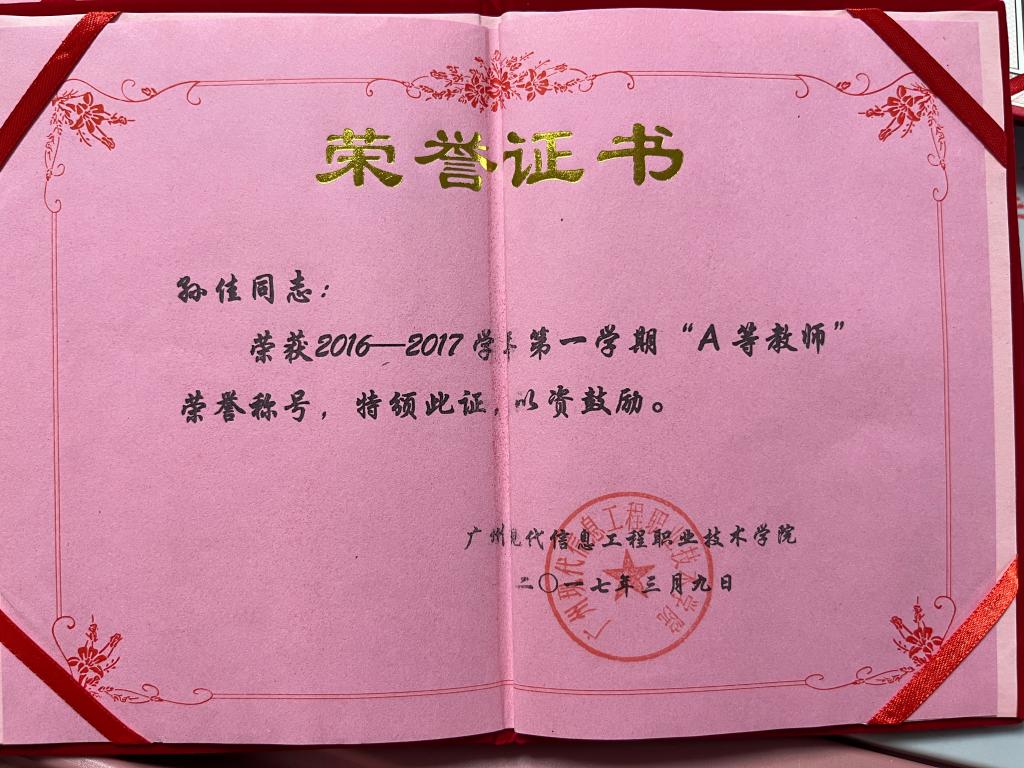 荣誉证书
孙佳同志：
荣获2016—2017学年第一学期“A等教师”
荣誉称号，特颁此证，以资鼓励。
广州现代信息工程职业技术学院
二〇一七年三月九日
广州现代信息工程职业技术学院